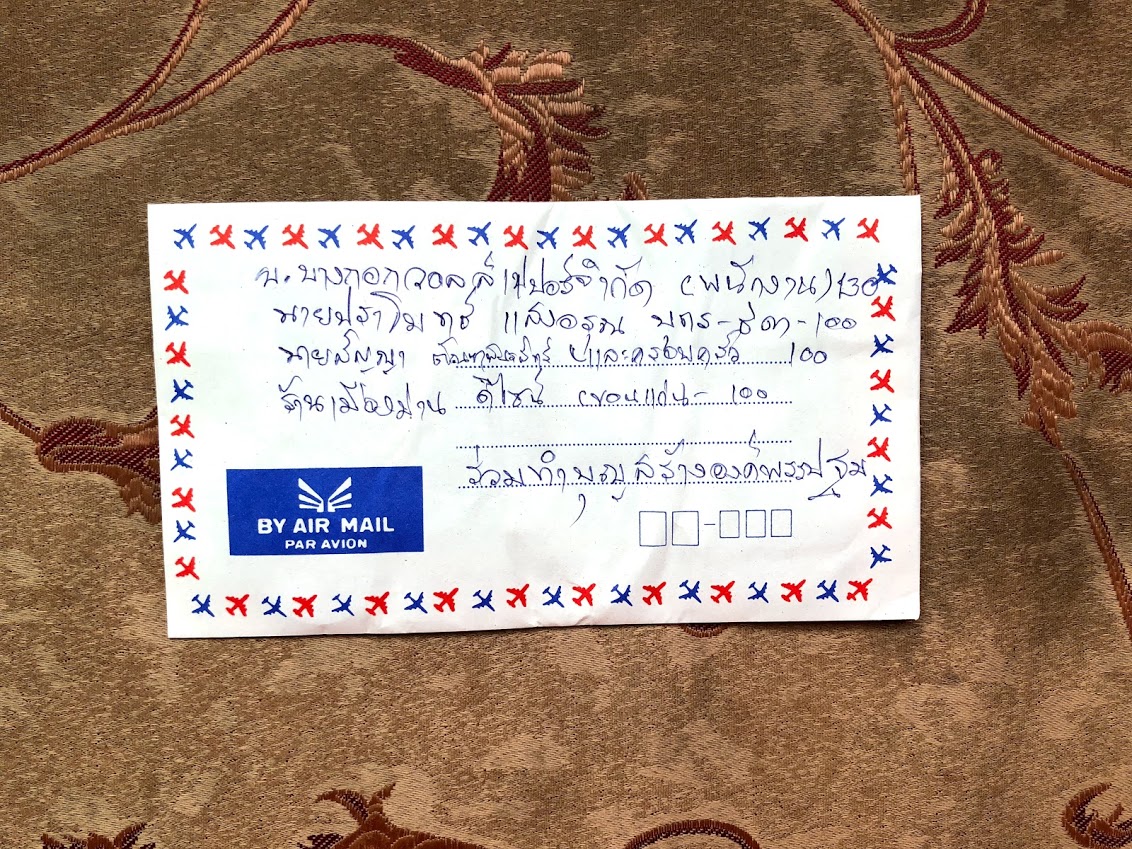 บ.บางกอกวอลล์เปเปอร์จำกัด (พนักงาน) 130
นายปราโมทย์ แสงอรุณ บุตร-ธิดา-100
นายสัญญา และครอบครัว 100
ร้านเมืองม่าน ดีไซน์ ขอนแก่น- 100
ร่วมทำบุญสร้างองค์พระปฐม
BY AIR MAIL
PAR AVION